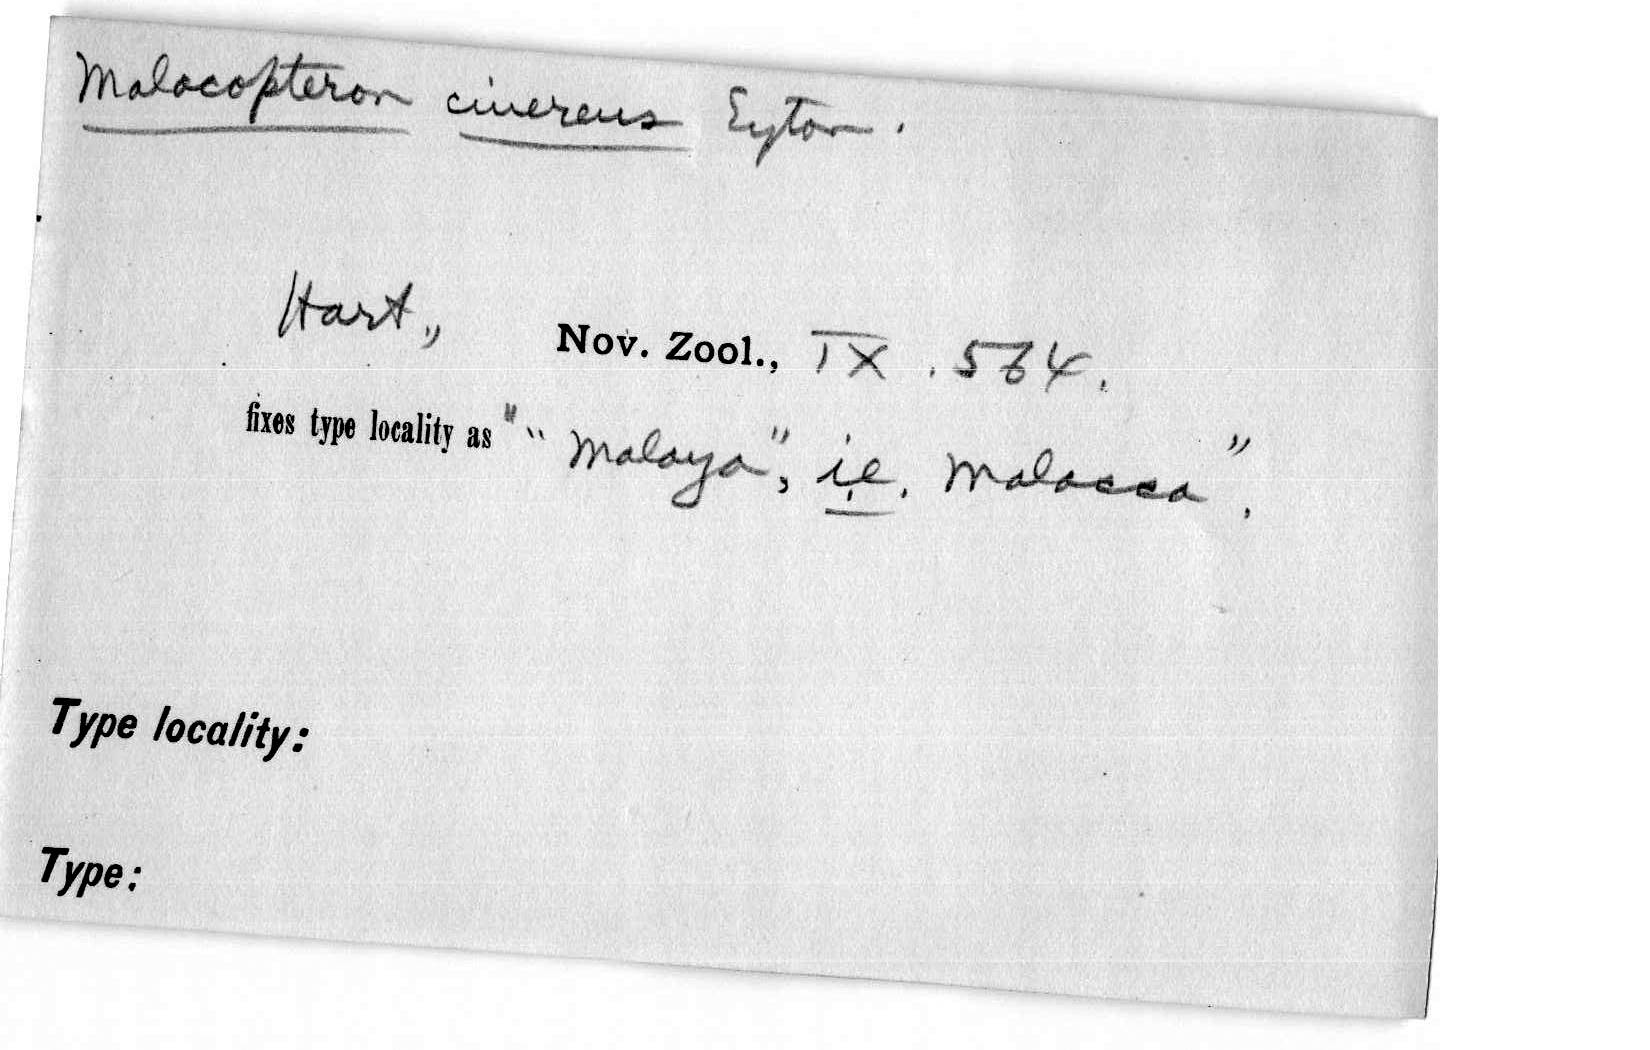 Malacopteron cinereus Eyton.
Hart., Nov. Zool., IX. 564.
fixes type locality as " "Malaya", i.e. Malacca".
Type locality:
Type: